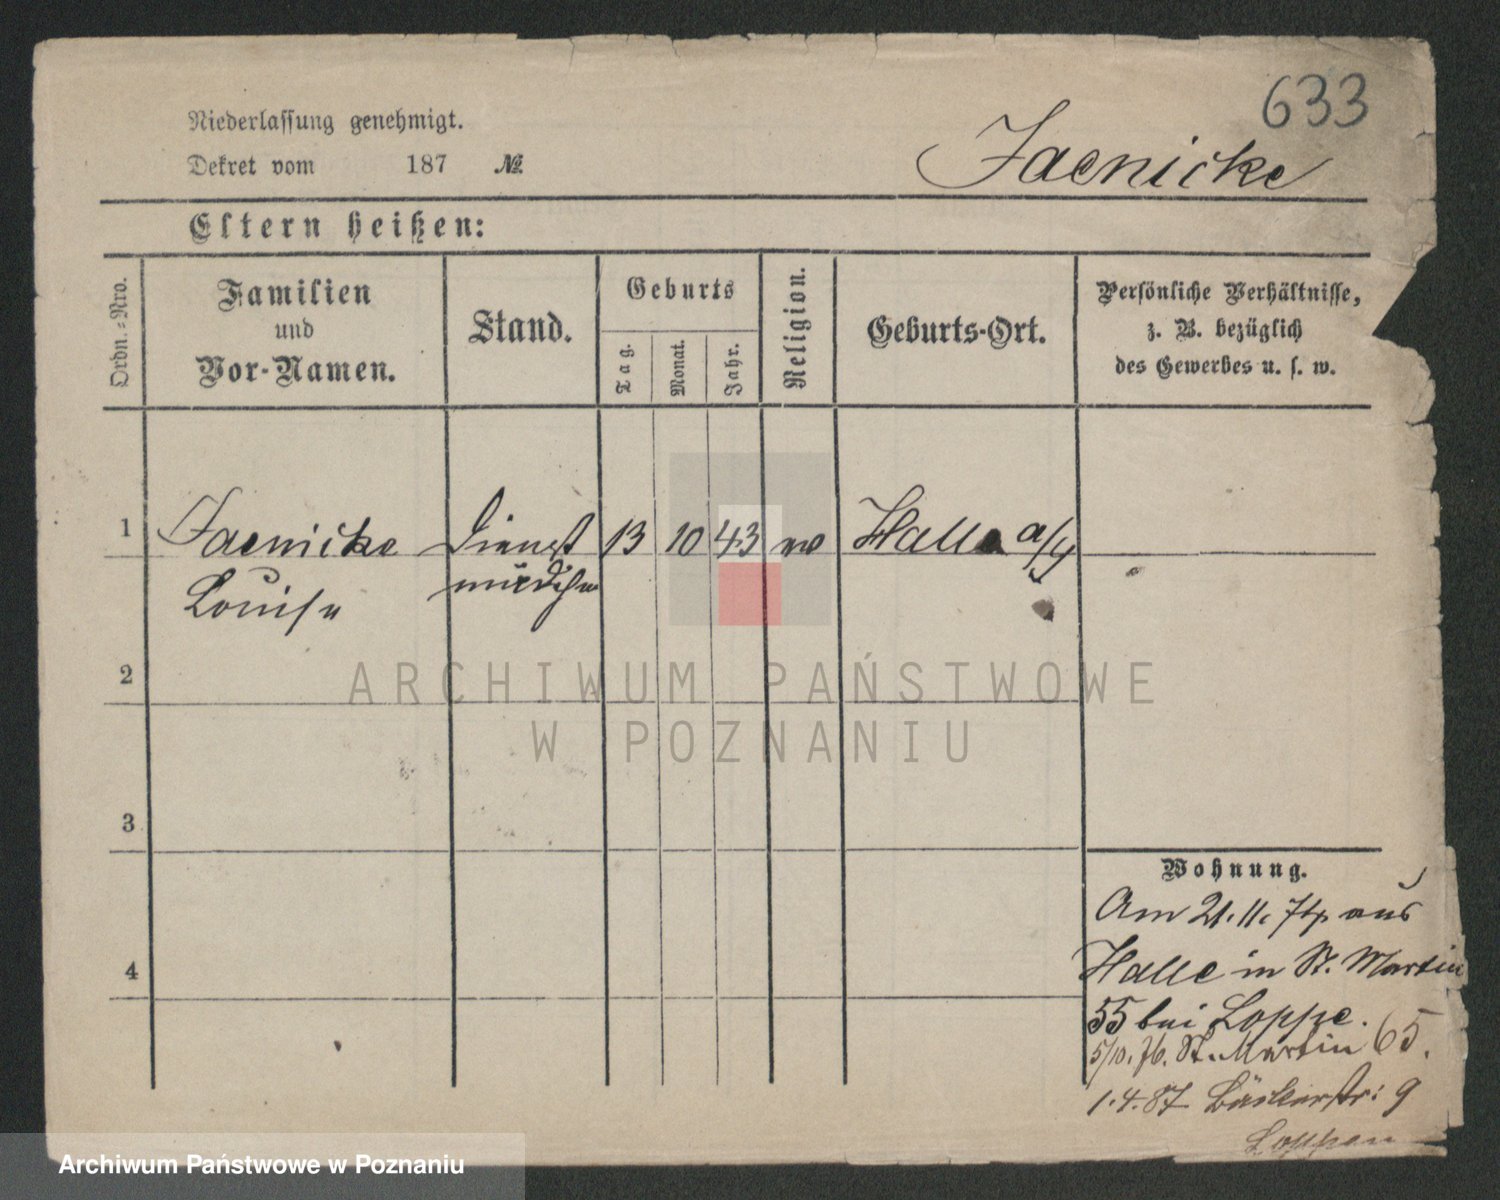 633
Niederlassung genehmigt.
Jaenicke
Dekret vom 187 №
Eltern heißen:
Ordn.-Nro.
Familien
und
Vor-Namen.
Stand.
Geburts
Tag.
Monat.
Jahr.
Religion.
Geburts-Ort.
Persönliche Verhältnisse,
z. B. bezüglich
des Gewerbes u. s. w.
1 Jaenicke Dienst 13 10 43 Halle a/
Louise mädchen
2
ARCHIWUM PAŃSTWOWE
W POZNANIU
3
4
Wohnung.
Am 21.11.74 aus
Halle in St. Martin
55 bei Loppe.
5/10.76. St. Martin 65.
1.4.87 Bäckerstr: 9
Loppen
Archiwum Państwowe w Poznaniu